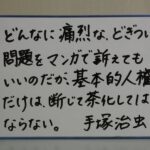 どんなに痛烈な、どぎつい
問題をマンガで訴えても
いいのだが、基本的人権
だけは、断じて茶化しては
ならない。 手塚治虫